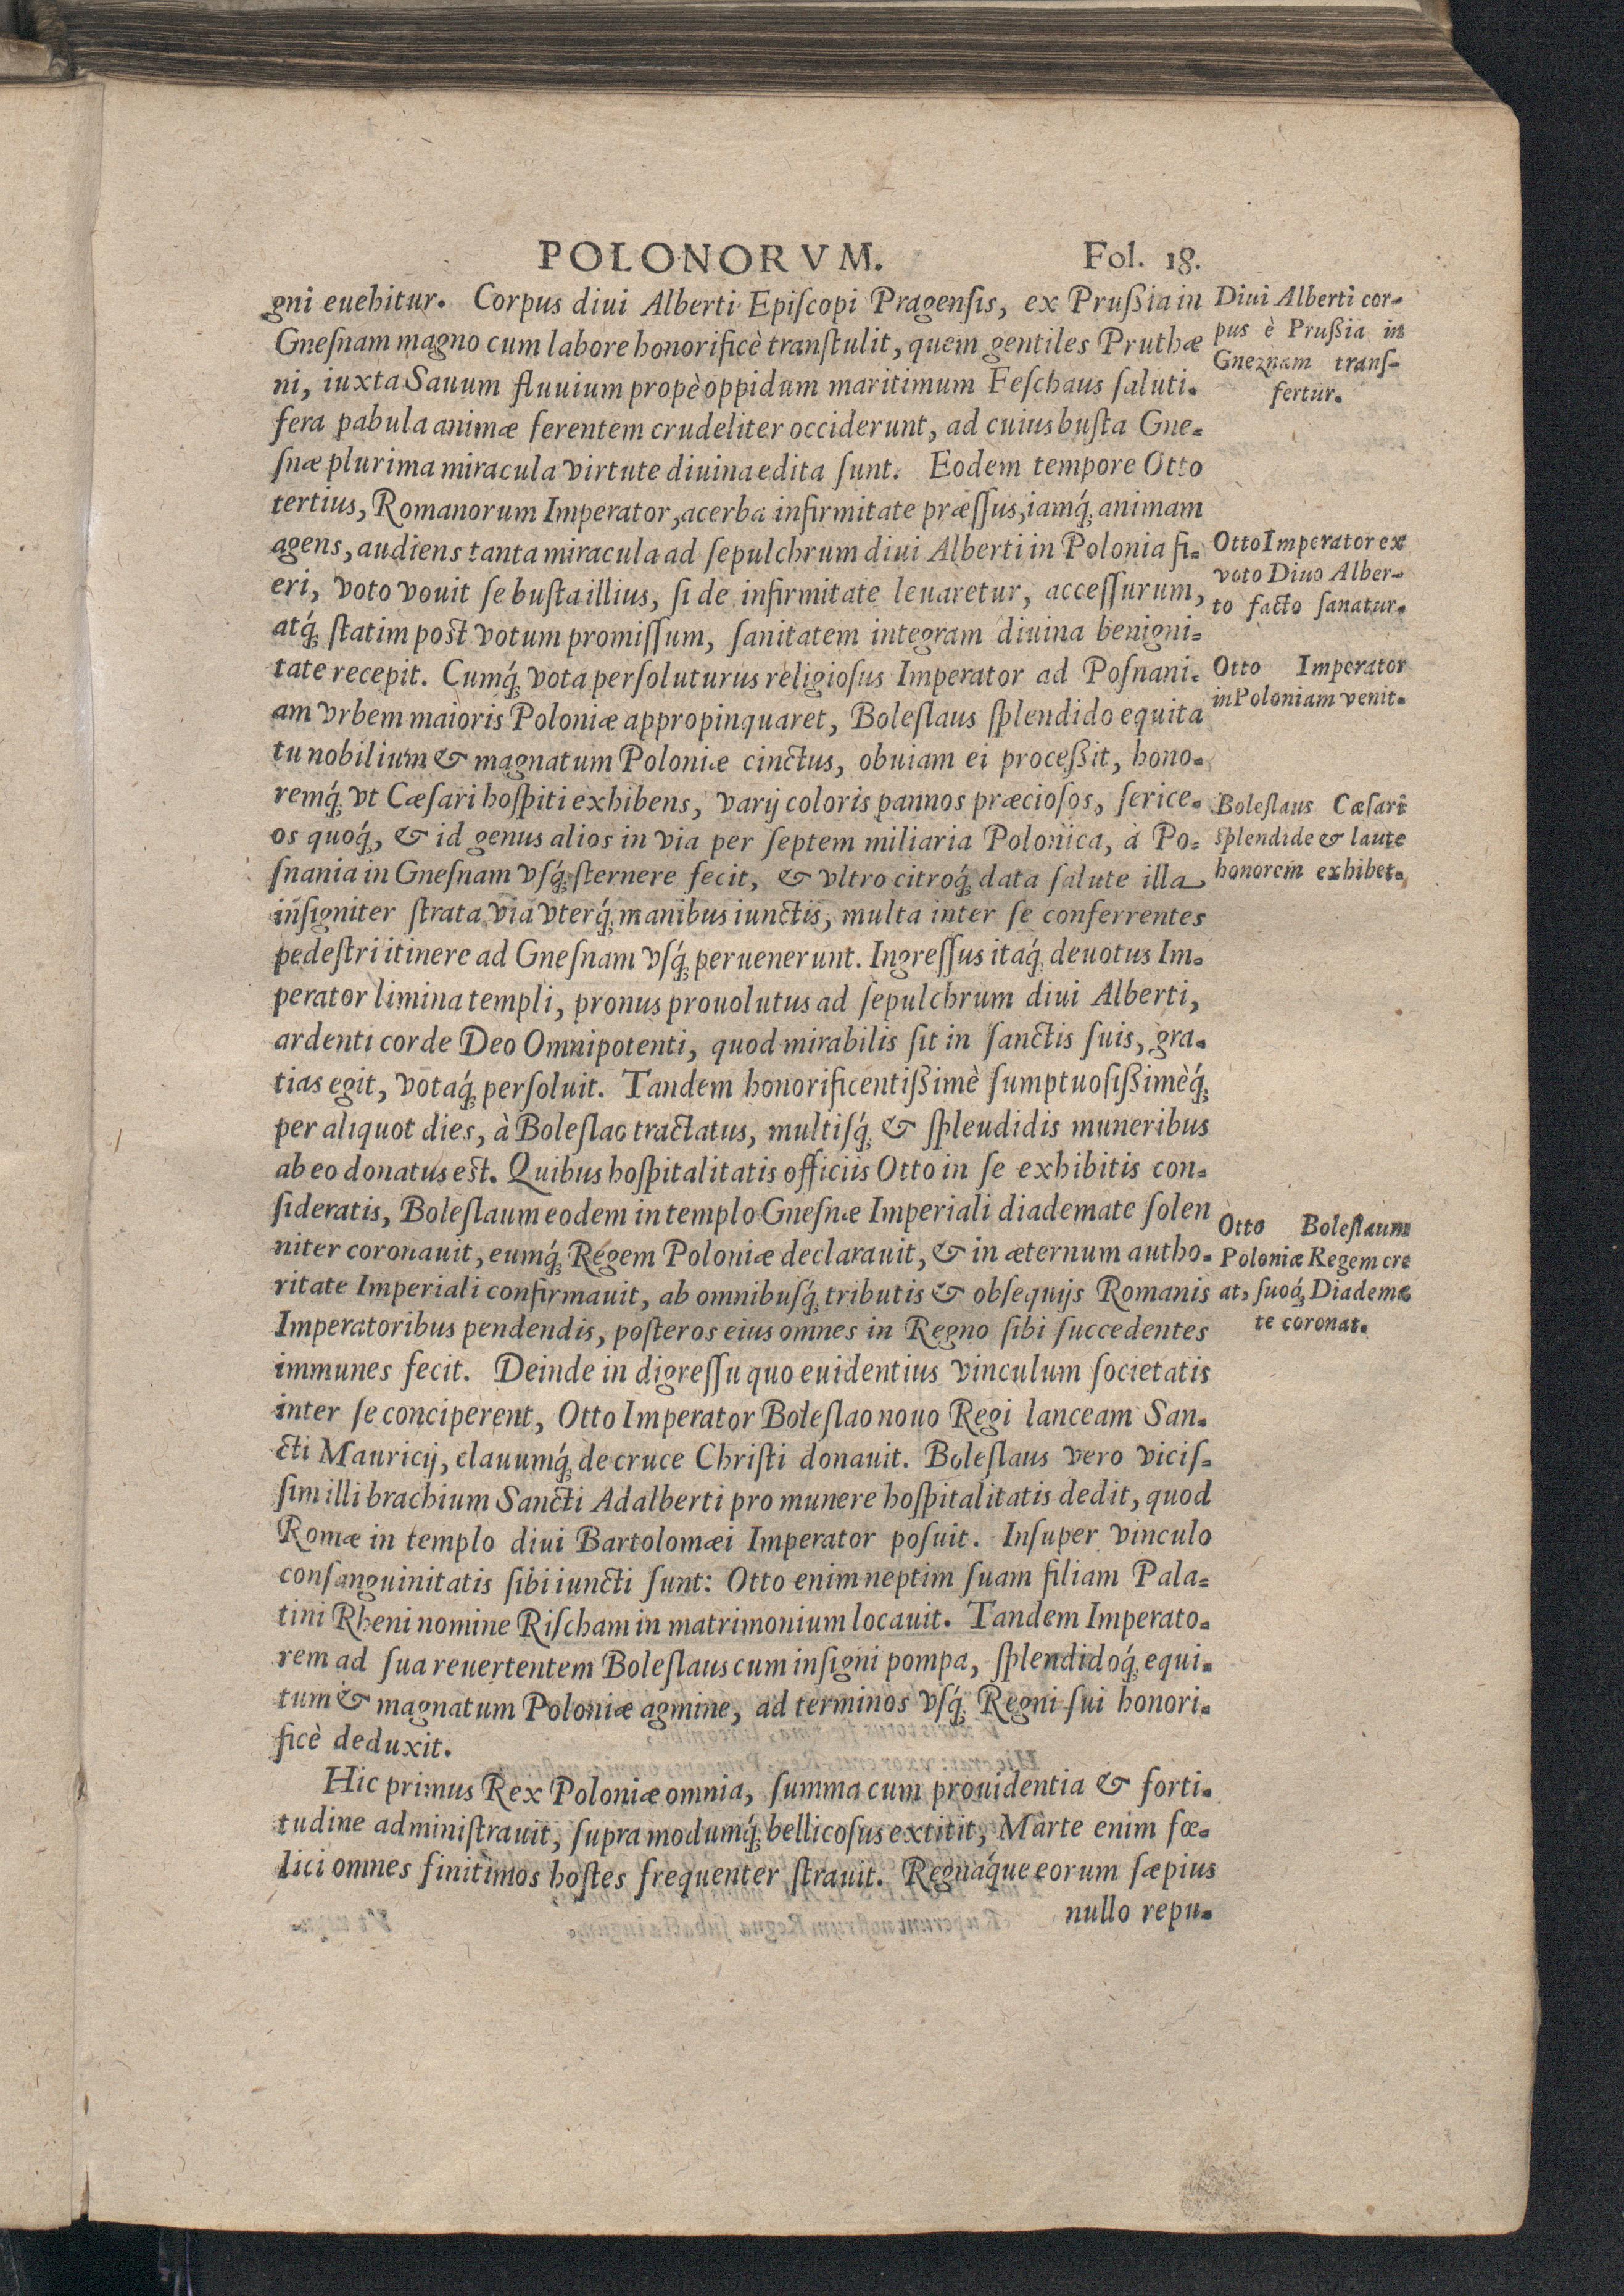 POLONORVM. Fol. 18.
gni euehitur. Corpus diui Alberti Epiſcopi Pragenſis, ex Prußia in
Gneſnam magno cum labore honorificè tranſtulit, quem gentiles Pruthæ
ni, iuxta Sauum fluuium propè oppidum maritimum Feſchaus ſaluti-
fera pabula animæ ferentem crudeliter occiderunt, ad cuius buſta Gne-
ſnæ plurima miracula virtute diuina edita ſunt. Eodem tempore Otto
tertius, Romanorum Imperator, acerba infirmitate præſſus, iamq́; animam
agens, audiens tanta miracula ad ſepulchrum diui Alberti in Polonia fi-
eri, voto vouit ſe buſta illius, ſi de infirmitate leuaretur, acceſſurum,
atq́; ſtatim poſt votum promiſſum, ſanitatem integram diuina benigni-
tate recepit. Cumq́; vota perſoluturus religioſus Imperator ad Poſnani-
am vrbem maioris Poloniæ appropinquaret, Boleſlaus ſplendido equita
tu nobilium & magnatum Poloniæ cinctus, obuiam ei proceßit, hono-
remq́; vt Cæſari hoſpiti exhibens, varij coloris pannos præcioſos, ſerice-
os quoq́;, & id genus alios in via per ſeptem miliaria Polonica, à Po-
ſnania in Gneſnam vſq́; ſternere fecit, & vltro citroq́; data ſalute illa
inſigniter ſtrata via vterq́; manibus iunctis, multa inter ſe conferrentes
pedeſtri itinere ad Gneſnam vſq́; peruenerunt. Ingreſſus itaq́; deuotus Im-
perator limina templi, pronus prouolutus ad ſepulchrum diui Alberti,
ardenti corde Deo Omnipotenti, quod mirabilis ſit in ſanctis ſuis, gra-
tias egit, votaq́; perſoluit. Tandem honorificentißimè ſumptuoſißimèq́;
per aliquot dies, à Boleſlao tractatus, multiſq́; & ſpleudidis muneribus
ab eo donatus eſt. Quibus hoſpitalitatis officiis Otto in ſe exhibitis con-
ſideratis, Boleſlaum eodem in templo Gneſnæ Imperiali diademate ſolen
niter coronauit, eumq́; Regem Poloniæ declarauit, & in æternum autho-
ritate Imperiali confirmauit, ab omnibuſq́; tributis & obſequijs Romanis
Imperatoribus pendendis, poſteros eius omnes in Regno ſibi ſuccedentes
immunes fecit. Deinde in digreſſu quo euidentius vinculum ſocietatis
inter ſe conciperent, Otto Imperator Boleſlao nouo Regi lanceam San-
cti Mauricij, clauumq́; de cruce Chriſti donauit. Boleſlaus vero viciſ-
ſim illi brachium Sancti Adalberti pro munere hoſpitalitatis dedit, quod
Romæ in templo diui Bartolomæi Imperator poſuit. Inſuper vinculo
conſanguinitatis ſibi iuncti ſunt: Otto enim neptim ſuam filiam Pala-
tini Rheni nomine Riſcham in matrimonium locauit. Tandem Imperato-
rem ad ſua reuertentem Boleſlaus cum inſigni pompa, ſplendidoq́; equi-
tum & magnatum Poloniæ agmine, ad terminos vſq́; Regni ſui honori-
ficè deduxit.
Hic primus Rex Poloniæ omnia, ſumma cum prouidentia & forti-
tudine adminiſtrauit, ſupra modumq́; bellicoſus extitit, Marte enim fœ-
lici omnes finitimos hoſtes frequenter ſtrauit. Regnáque eorum ſæpius
nullo repu-
Diui Alberti cor-
pus è Pruſſia in
Gneznam tranſ-
fertur.
Otto Imperator ex
voto Diuo Alber-
to facto ſanatur.
Otto Imperator
in Poloniam venit.
Boleſlaus Cæſari
ſplendide & laute
honorem exhibet.
Otto Boleſlaum
Poloniæ Regem cre
at, ſuoq́; Diadema
te coronat.